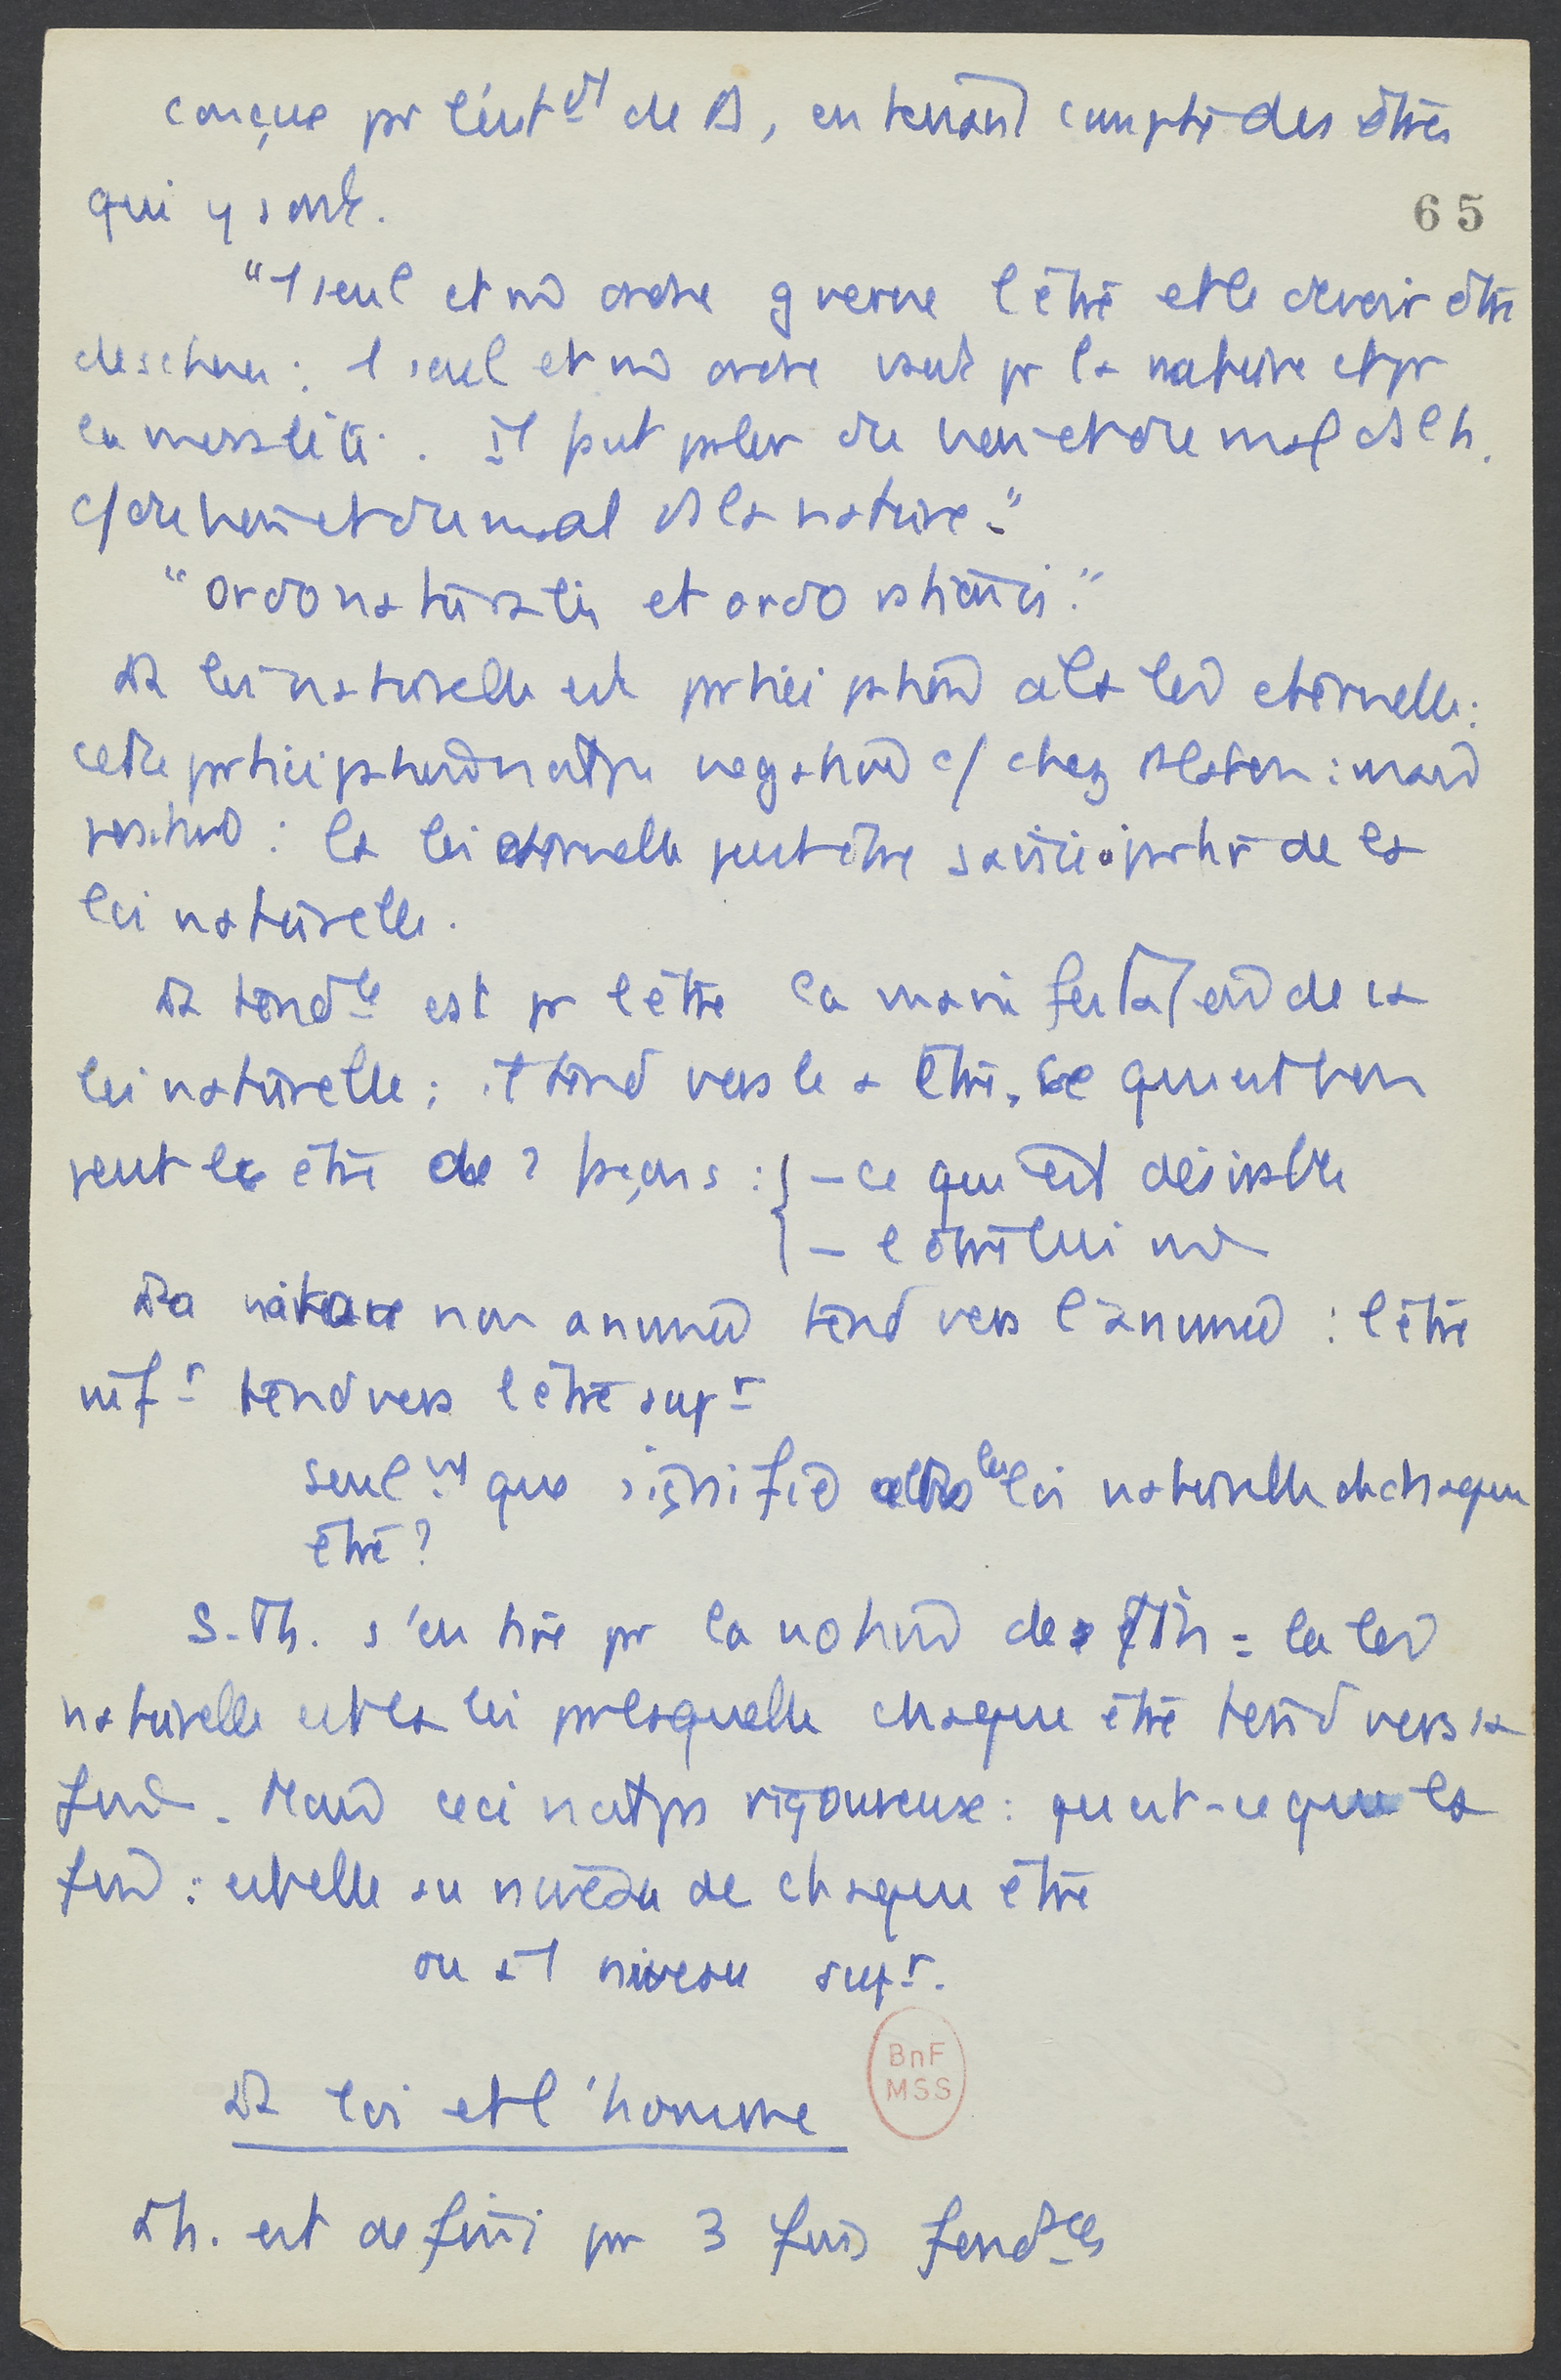 conçue pr l'ent^dt de D, en tenant compte des êtres
qui y sont.
65
"1 seul et m̂ ordre gverne l'être et le devoir être
des choses : 1 seul et m̂ ordre vaut pr la nature et pr
la moralité. Il faut parler du bien et du mal ds l h.
c/ du bien et du mal ds la nature."
"ordo naturalis et ordo rationis."
La loi naturelle est participation à la loi eternelle :
cette participation n'est pas negation c/ chez Platon : mais
position : la loi eternelle peut être saisie à partir de la
loi naturelle.
La tend^ce est pr l'être la manifestation de sa
loi naturelle ; il tend vers le + être. Ce qui est bon
peut l'être de 2 façons : { – ce qui est désirable
– l'être lui m̂
La nature non animée tend vers l'animée : l'être
inf^r tend vers l'être sup^r
Seul^mt que signifie alors la loi naturelle de chaque
être ?
S. Th. s'en tire pr la notion de fin = la loi
naturelle est la loi pr laquelle chaque être tend vers sa
fin. Mais ceci n'est pas rigoureux : qu'est-ce que la
fin : est elle au niveau de chaque être
ou à 1 niveau sup^r.
BnF
MSS
La loi et l'homme
L'h. est defini pr 3 fins fond^ales